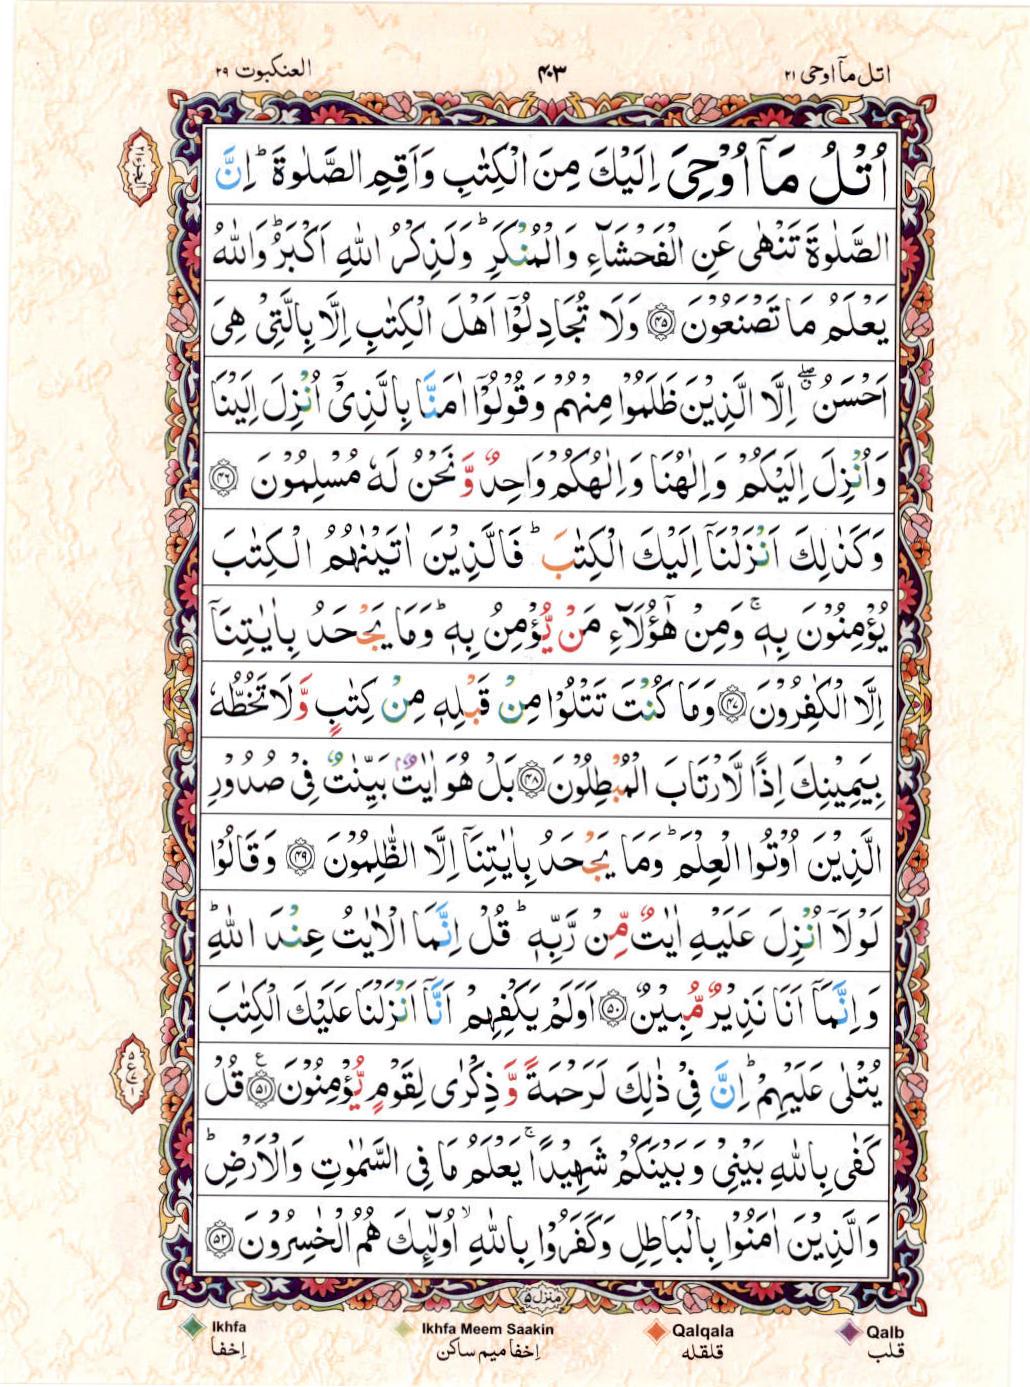 اتل مآ اوحی ۲۱
۴۰۳
العنکبوت ۲۹
اُتْلُ مَاۤ اُوْحِیَ اِلَیْكَ مِنَ الْكِتٰبِ وَاَقِمِ الصَّلٰوةَ ؕ اِنَّ
الصَّلٰوةَ تَنْهٰی عَنِ الْفَحْشَآءِ وَالْمُنْكَرِ ؕ وَلَذِكْرُ اللّٰهِ اَكْبَرُ ؕ وَاللّٰهُ
یَعْلَمُ مَا تَصْنَعُوْنَ ﴿۴۵﴾ وَلَا تُجَادِلُوْۤا اَهْلَ الْكِتٰبِ اِلَّا بِالَّتِیْ هِیَ
اَحْسَنُ ۖۗ اِلَّا الَّذِیْنَ ظَلَمُوْا مِنْهُمْ وَقُوْلُوْۤا اٰمَنَّا بِالَّذِیْۤ اُنْزِلَ اِلَیْنَا
وَاُنْزِلَ اِلَیْكُمْ وَاِلٰهُنَا وَاِلٰهُكُمْ وَاحِدٌ وَّنَحْنُ لَهٗ مُسْلِمُوْنَ ﴿۴۶﴾
وَكَذٰلِكَ اَنْزَلْنَاۤ اِلَیْكَ الْكِتٰبَ ؕ فَالَّذِیْنَ اٰتَیْنٰهُمُ الْكِتٰبَ
یُؤْمِنُوْنَ بِهٖ ۚ وَمِنْ هٰۤؤُلَآءِ مَنْ یُّؤْمِنُ بِهٖ ؕ وَمَا یَجْحَدُ بِاٰیٰتِنَاۤ
اِلَّا الْكٰفِرُوْنَ ﴿۴۷﴾ وَمَا كُنْتَ تَتْلُوْا مِنْ قَبْلِهٖ مِنْ كِتٰبٍ وَّلَا تَخُطُّهٗ
بِیَمِیْنِكَ اِذًا لَّارْتَابَ الْمُبْطِلُوْنَ ﴿۴۸﴾ بَلْ هُوَ اٰیٰتٌۢ بَیِّنٰتٌ فِیْ صُدُوْرِ
الَّذِیْنَ اُوْتُوا الْعِلْمَ ؕ وَمَا یَجْحَدُ بِاٰیٰتِنَاۤ اِلَّا الظّٰلِمُوْنَ ﴿۴۹﴾ وَقَالُوْا
لَوْلَاۤ اُنْزِلَ عَلَیْهِ اٰیٰتٌ مِّنْ رَّبِّهٖ ؕ قُلْ اِنَّمَا الْاٰیٰتُ عِنْدَ اللّٰهِ ؕ
وَاِنَّمَاۤ اَنَا نَذِیْرٌ مُّبِیْنٌ ﴿۵۰﴾ اَوَلَمْ یَكْفِهِمْ اَنَّاۤ اَنْزَلْنَا عَلَیْكَ الْكِتٰبَ
یُتْلٰی عَلَیْهِمْ ؕ اِنَّ فِیْ ذٰلِكَ لَرَحْمَةً وَّذِكْرٰی لِقَوْمٍ یُّؤْمِنُوْنَ ﴿۵۱﴾ ع قُلْ
كَفٰی بِاللّٰهِ بَیْنِیْ وَبَیْنَكُمْ شَهِیْدًا ۚ یَعْلَمُ مَا فِی السَّمٰوٰتِ وَالْاَرْضِ ؕ
وَالَّذِیْنَ اٰمَنُوْا بِالْبَاطِلِ وَكَفَرُوْا بِاللّٰهِ ۙ اُولٰٓئِكَ هُمُ الْخٰسِرُوْنَ ﴿۵۲﴾
منزل ۵
Ikhfa
Ikhfa Meem Saakin
Qalqala
Qalb
اِخفا
اِخفا میم ساکن
قلقله
قلب